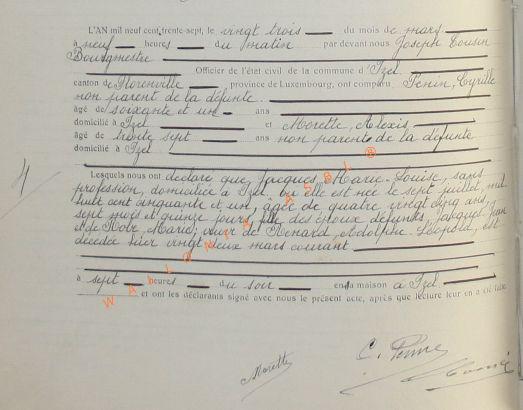 L'AN mil neuf cent trente-sept, le vingt trois du mois de mars
à neuf heures du matin par devant nous Joseph
Bourgmestre
Officier de l'état civil de la commune d'Izel
canton de Florenville, province de Luxembourg, ont comparu Penin, Cyrille
non parent de la défunte
âgé de soixante et un ans
domicilié à Izel et Morette, Alexis
âgé de trente sept ans non parent de la défunte
domicilié à Izel
4
Lesquels nous ont déclaré que, Jacques, Marie-Louise, sans
profession, domiciliée à Izel où elle est née le sept juillet mil
huit cent cinquante et un, âgée de quatre vingt cinq ans,
sept mois et quinze jours, fille des époux défunts, Jacques, Jean
et de Marie, veuve de Renard, Adolphe-Léopold, est
décédée hier vingt deux mars courant
à sept heures du soir en sa maison à Izel
et ont les déclarants signé avec nous le présent acte, après que lecture leur en a été faite
Morette
WALLONIA ASBL ®